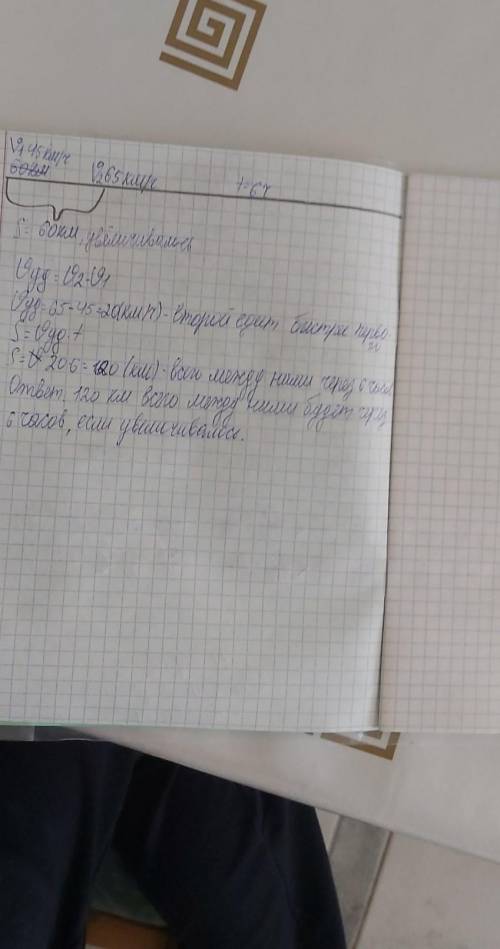 V1 45 км/ч
60 км V2 65 км/ч t=6ч
S= 60 км, увеличивалось
Vуд = V2-V1
Vуд=65-45=20(км/ч)- второй едит быстрее перво-
го
S=Vуд·t
S= 20·6=120 (км)- всего между ними через 6 часов
Ответ: 120 км всего между ними будет через
6 часов, если увеличивалось.